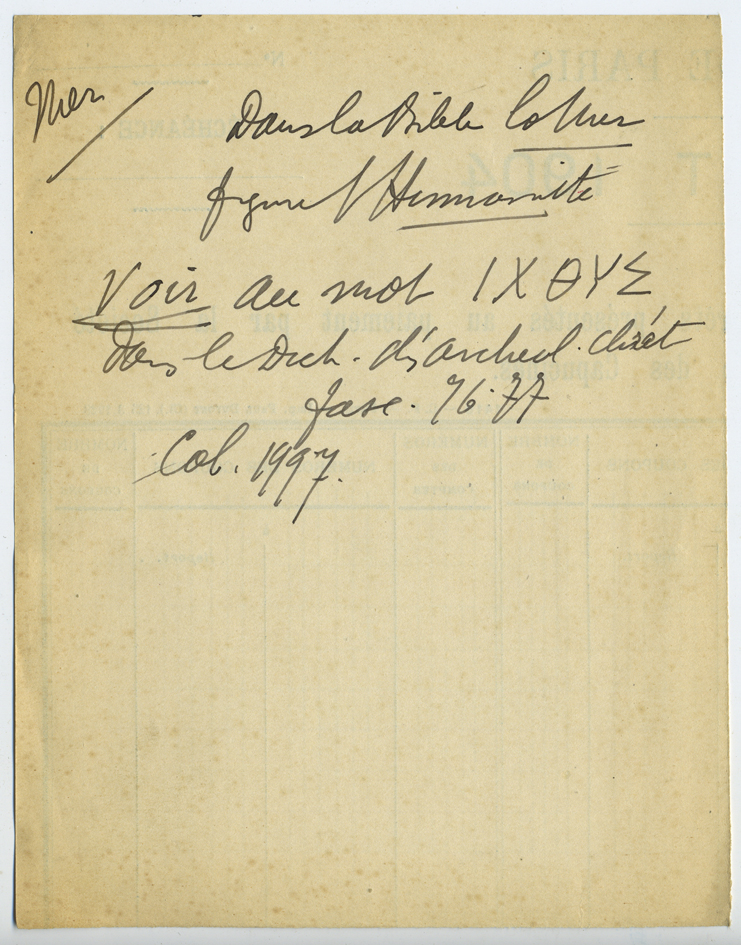 Mer /
Dans la Bible la Mer
figure l'Humanité
Voir au mot ΙΧΘΥΣ
Dans le Dict. d'archeol. chrét
fasc. 76-77
Col. 1997.